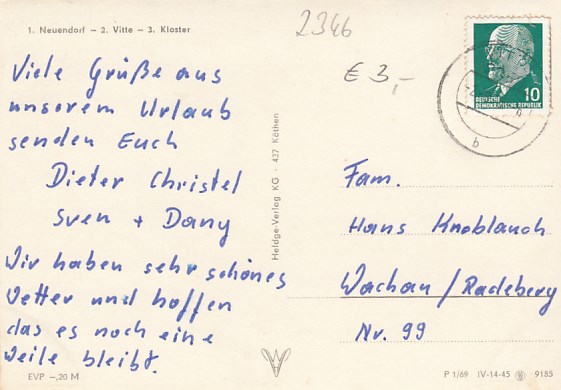 1. Neuendorf – 2. Vitte – 3. Kloster
2346
€ 3,-
10
DEUTSCHE
DEMOKRATISCHE REPUBLIK
b
b
Viele Grüße aus
unserem Urlaub
senden Euch
Dieter Christel
Sven + Dany
Wir haben sehr schönes
Wetter und hoffen
das es noch eine
Weile bleibt.
EVP –,20 M
Heldge-Verlag KG · 437 Köthen
Fam.
Hans Knoblauch
Wachau / Radeberg
Nr. 99
P 1/69 IV-14-45 9185